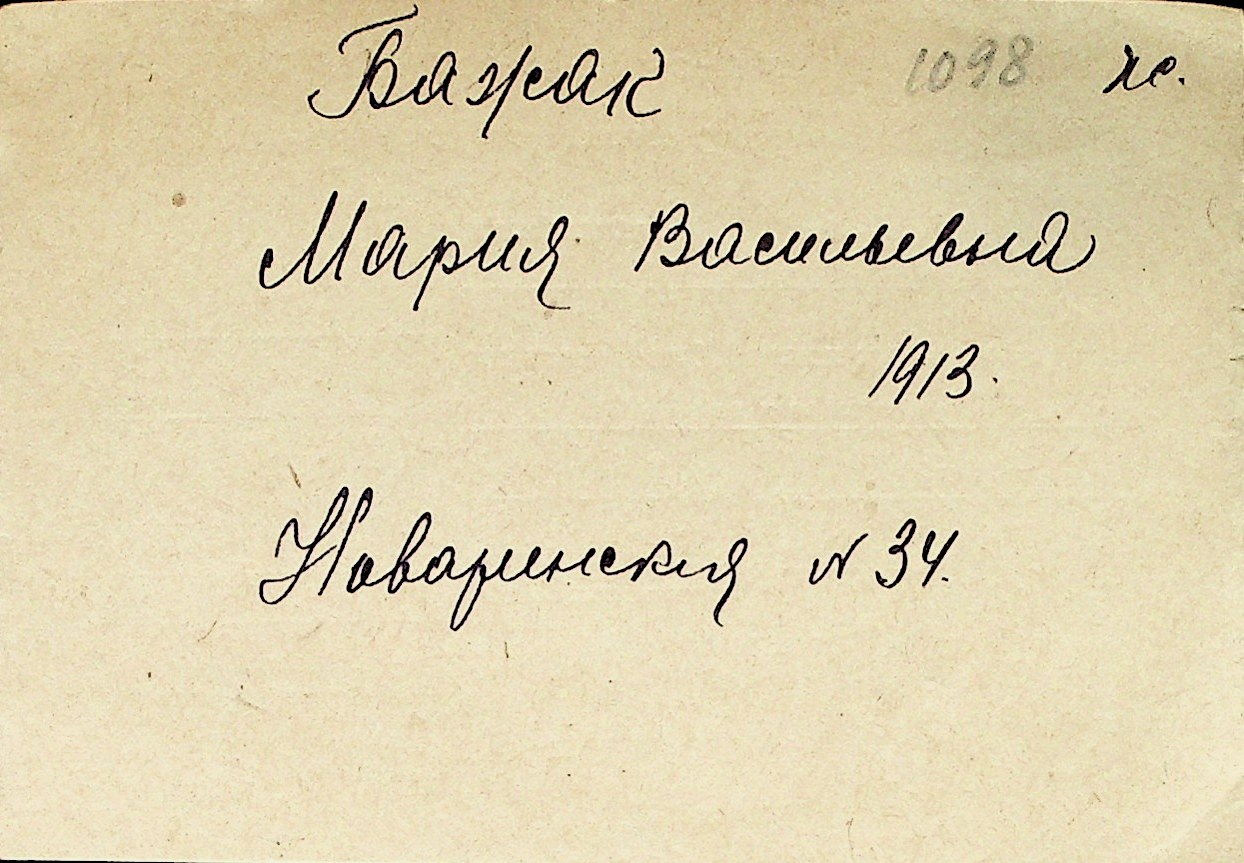 Бажак 1098 ж.
Мария Васильевна
1913.
Новаринская N 34.